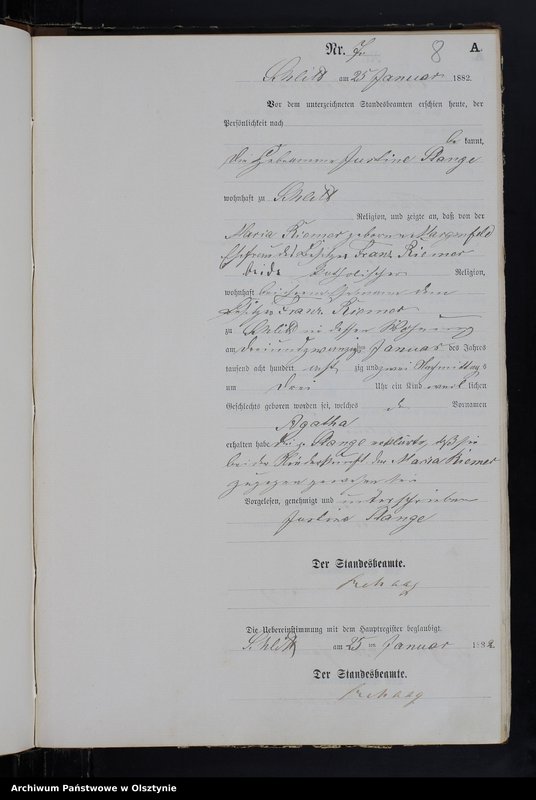 Nr. 8 A.
Schlitt am 25 Januar 1882.
Vor dem unterzeichneten Standesbeamten erschien heute, der
Persönlichkeit nach
be kannt,
die Hebeamme Justine Stange
wohnhaft zu Schlitt
Religion, und zeigte an, daß von der
Maria Riemer geborene Margenfeld
Ehefrau des Besitzers Franz Riemer
beide katholischer Religion,
wohnhaft bei ihrem Ehemann dem
Besitzer Franz Riemer
zu Schlitt in dessen Wohnung
am dreiundzwanzigsten Januar des Jahres
tausend acht hundert acht zig und zwei Nachmittags
um drei Uhr ein Kind weib lichen
Geschlechts geboren worden sei, welches den Vornamen
Agatha
erhalten habe. Die p. Stange erklärte, daß sie
bei der Niederkunft der Maria Riemer
zugegen gewesen sei
Vorgelesen, genehmigt und unterschrieben
Justine Stange
Der Standesbeamte.
Die Uebereinstimmung mit dem Hauptregister beglaubigt.
Schlitt am 25 ten Januar 1882
Der Standesbeamte.
Archiwum Państwowe w Olsztynie